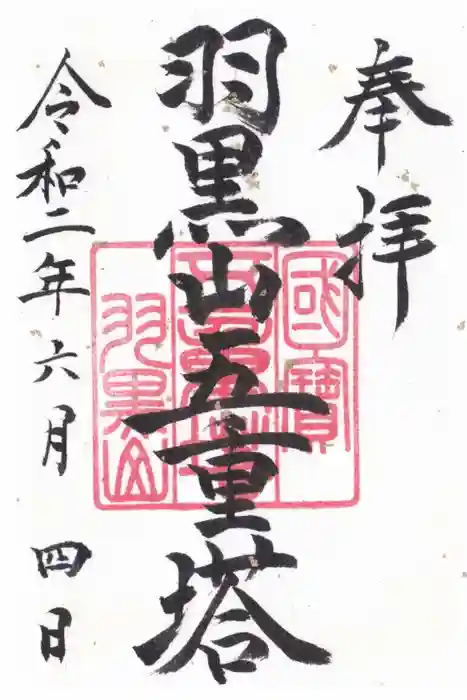 奉拝
羽黒山五重塔
國寳
五重塔
羽黒山
令和二年六月四日